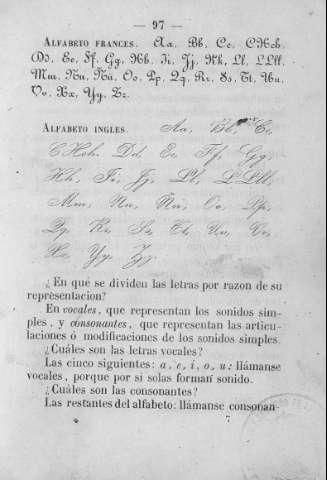 — 97 —
ALFABETO FRANCES. Aa, Bb, Cc, CHch,
Dd, Ee, Ff, Gg, Hh, Ii, Jj, Kk, Ll, LLll,
Mm, Nn, Ññ, Oo, Pp, Qq, Rr, Ss, Tt, Uu,
Vv, Xx, Yy, Zz.
ALFABETO INGLES. Aa, Bb, Cc,
CHch, Dd, Ee, Ff, Gg,
Hh, Ii, Jj, Ll, LLll,
Mm, Nn, Ññ, Oo, Pp,
Qq, Rr, Ss, Tt, Uu, Vv,
Xx, Yy, Zz
¿En qué se dividen las letras por razon de su
representacion?
En vocales, que representan los sonidos sim-
ples, y consonantes, que representan las articu-
laciones ó modificaciones de los sonidos simples.
¿Cuáles son las letras vocales?
Las cinco siguientes: a, e, i, o, u: llámanse
vocales, porque por sí solas forman sonido.
¿Cuáles son las consonantes?
Las restantes del alfabeto: llámanse consonan-
7